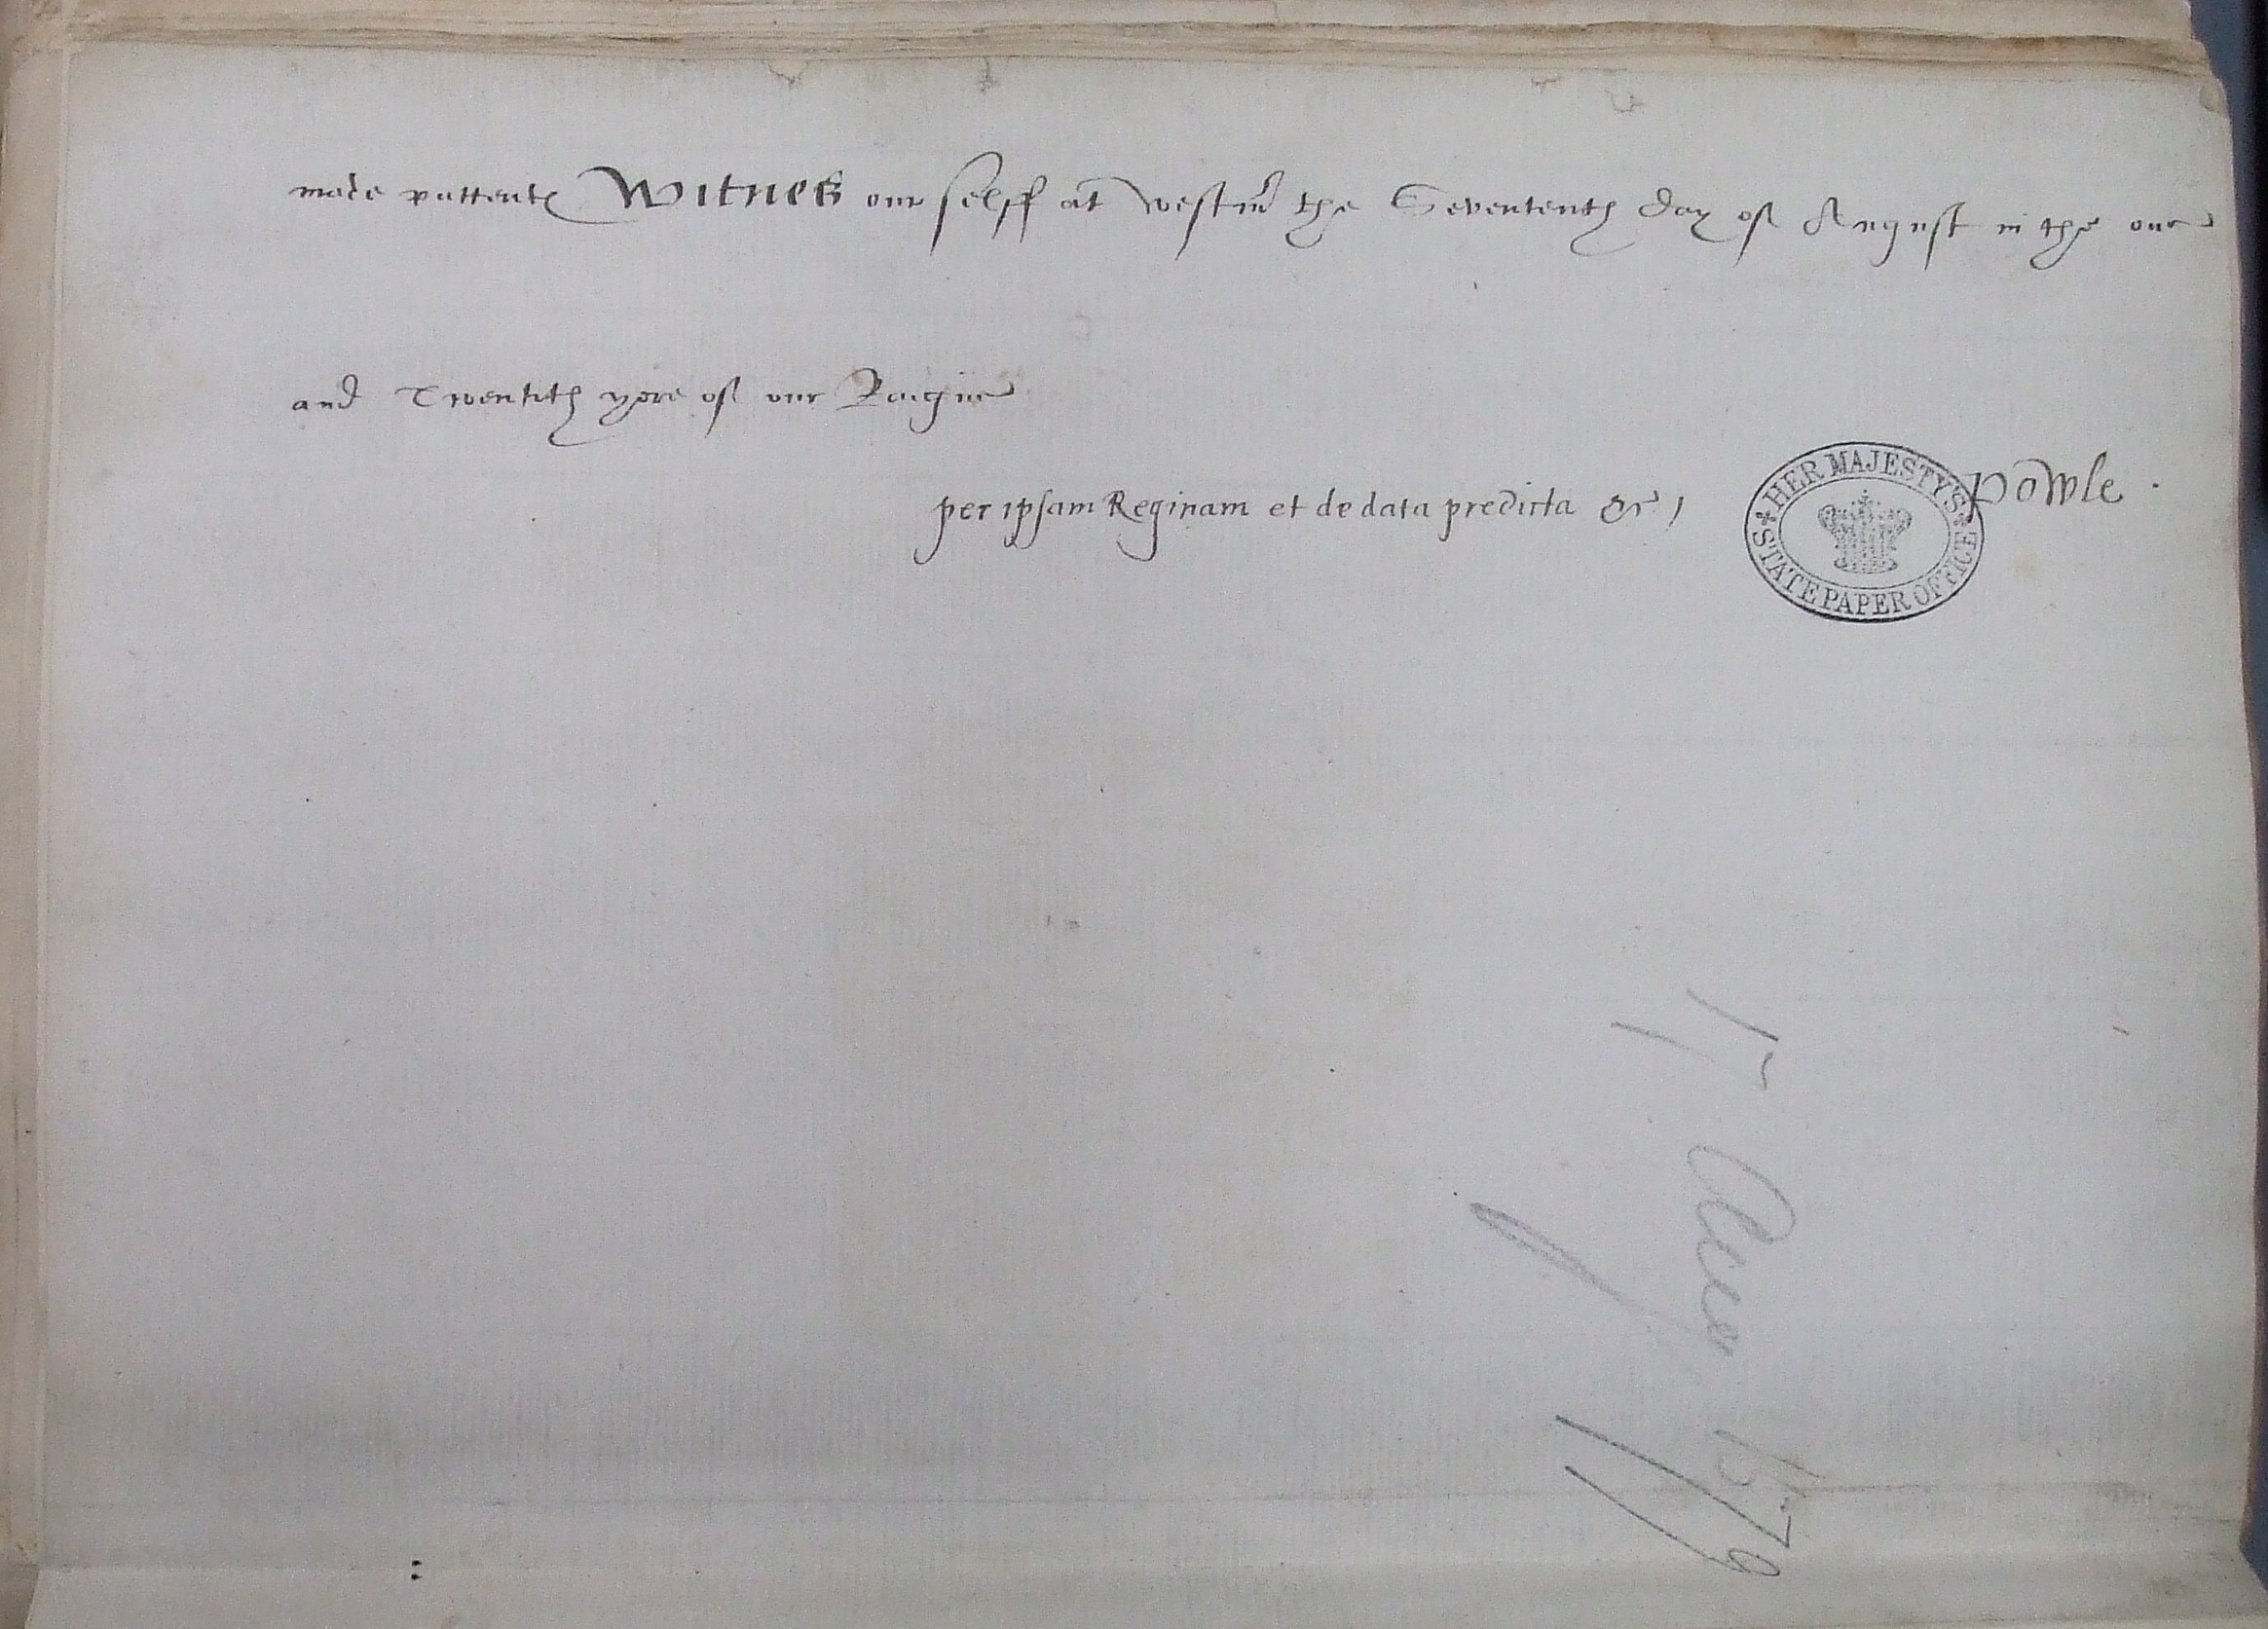 made pattentes Witnes our selff at Westm̄ the Sevententh day of August in the one
and Twentith yere of our Raigne
per ipsam Reginam et de data predicta &c
Powle.
HER MAJESTY'S
STATE PAPER OFFICE
17 Aug 1579